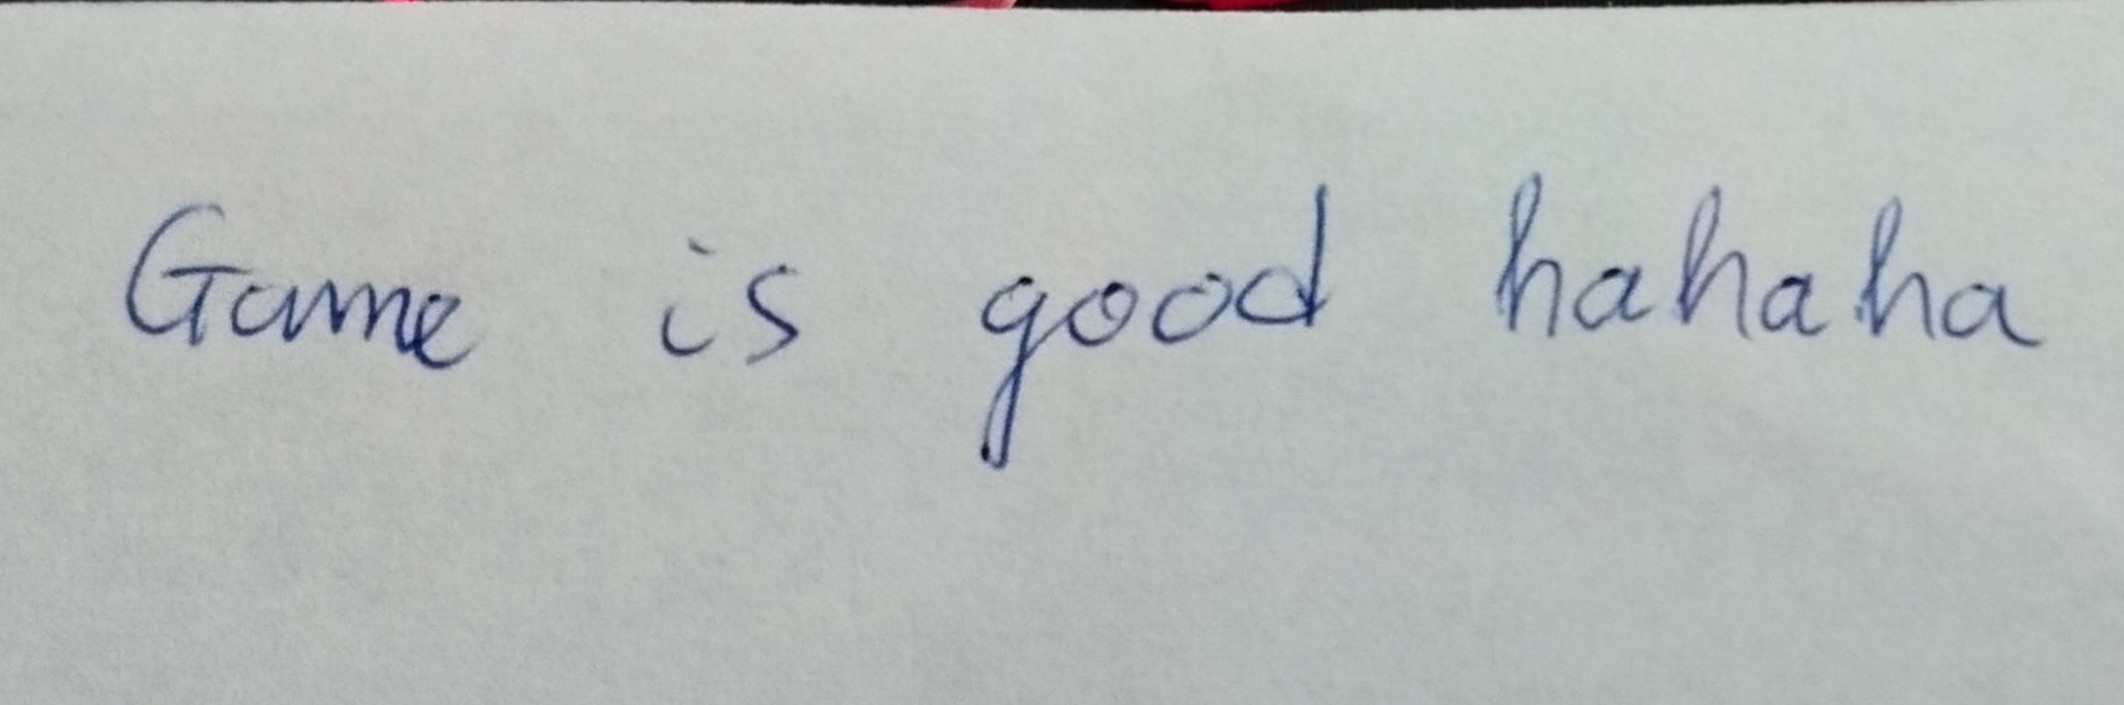 Game is good hahaha